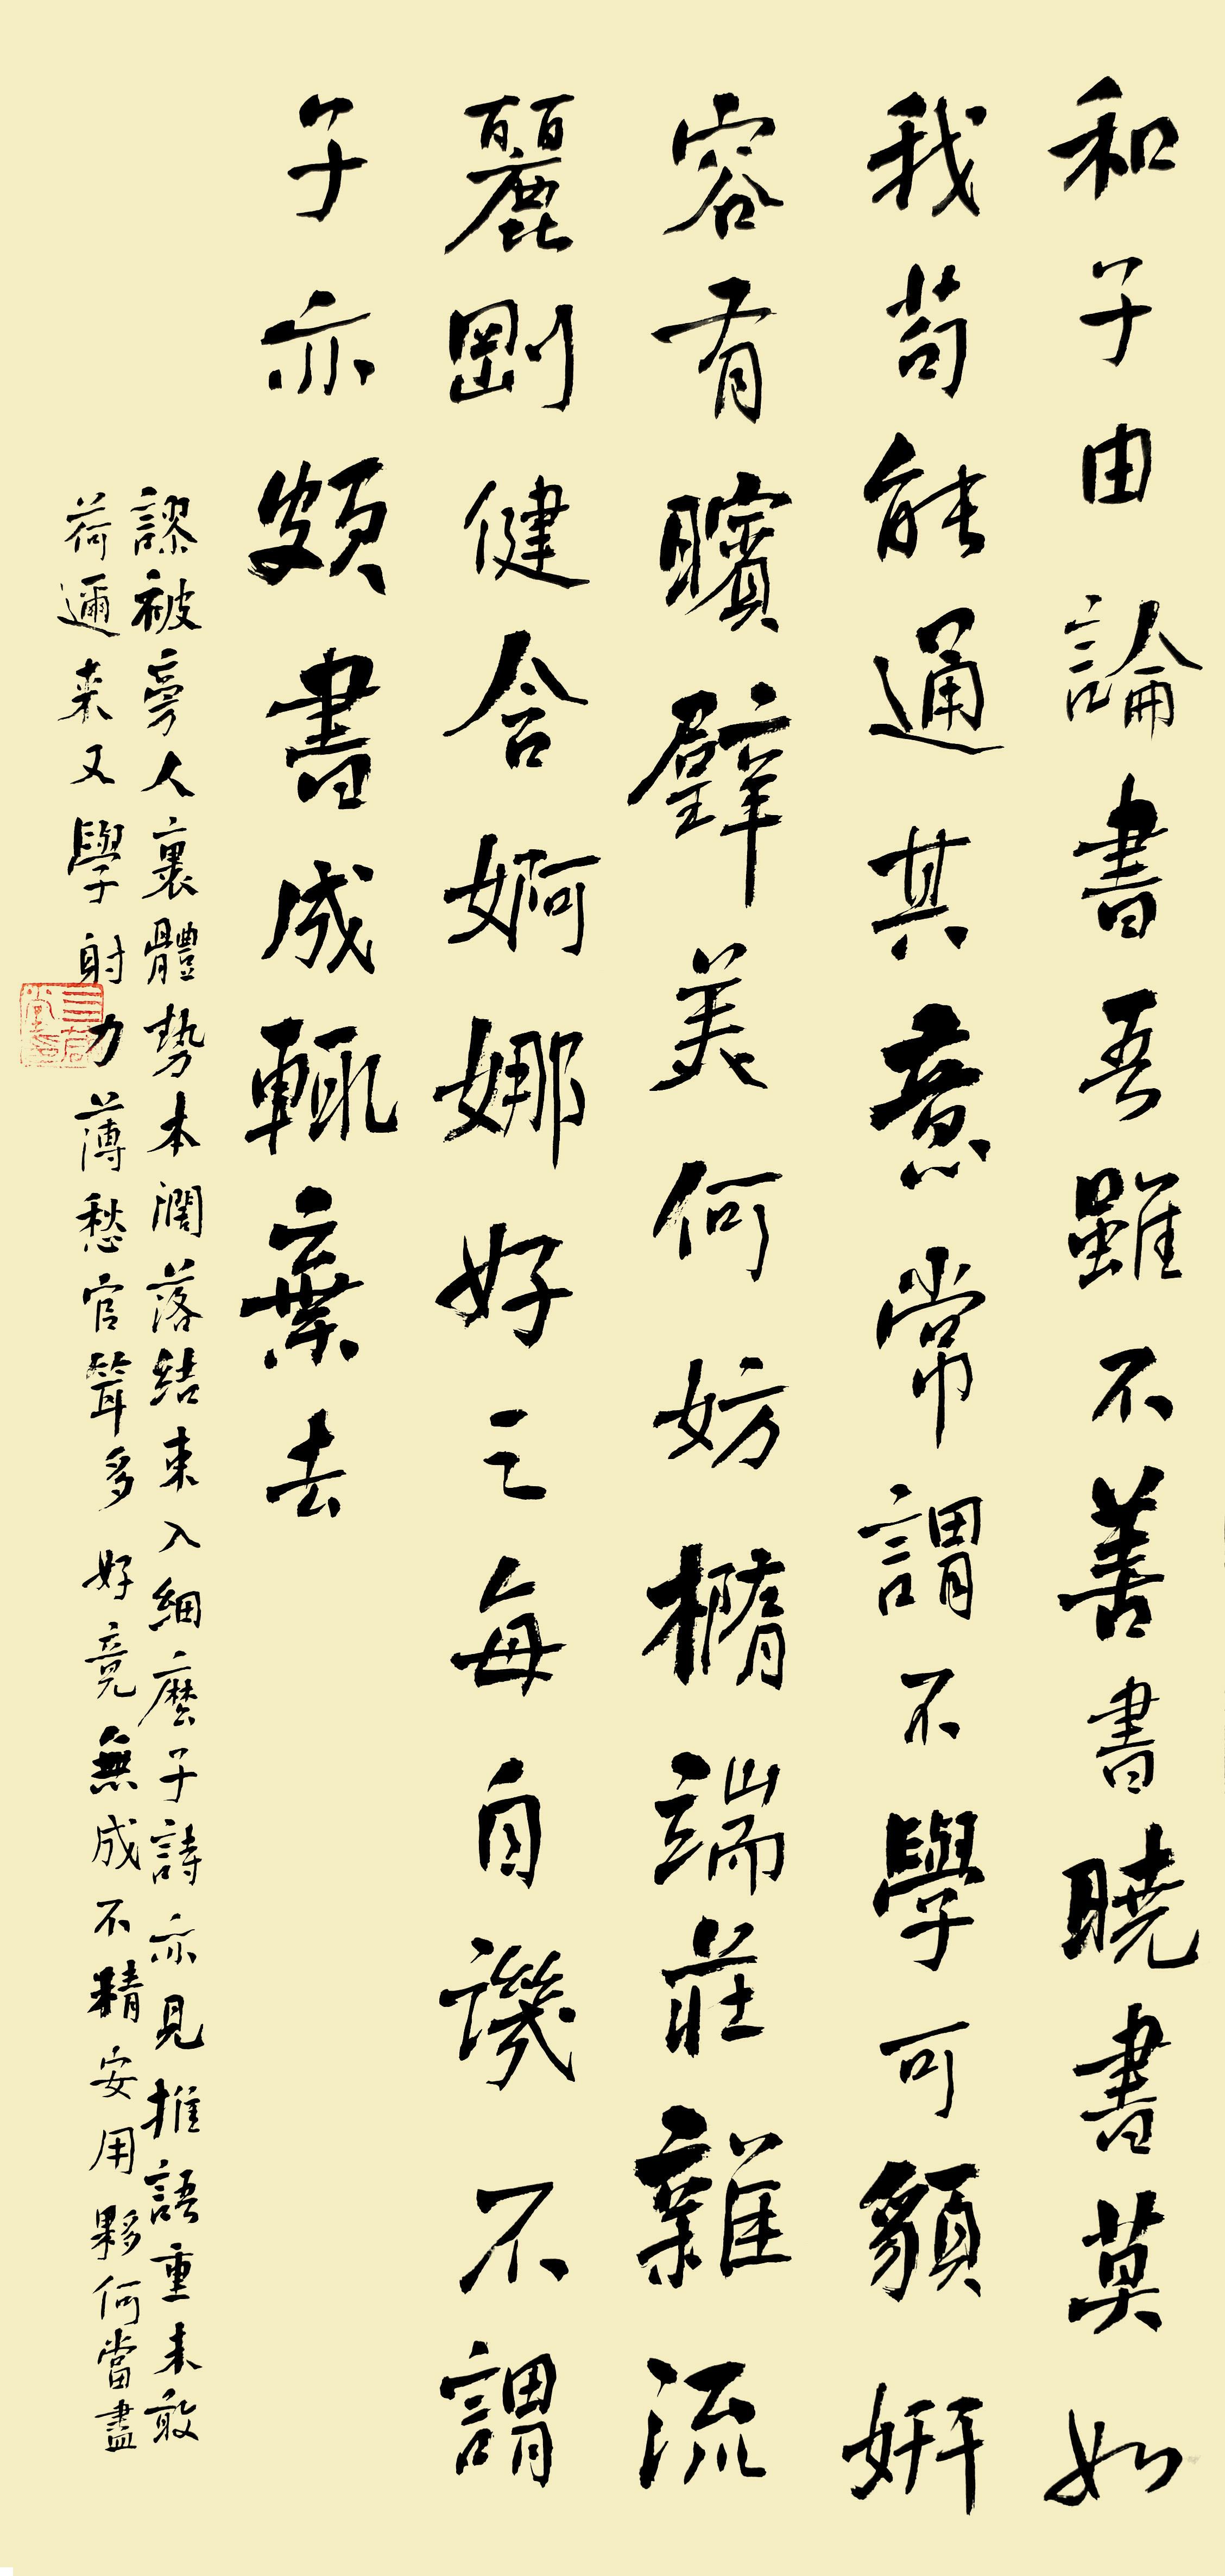 和子由論書吾雖不善書曉書莫如
我苟能通其意常謂不學可貌妍
容有矉璧美何妨橢端莊雜流
麗剛健含婀娜好之每自譏不謂
子亦頗書成輒棄去
謬被旁人裹體勢本濶落結束入細麽子詩亦見推語重未敢
荷邇来又學射力薄愁官笴多好竟無成不精安用夥何當盡